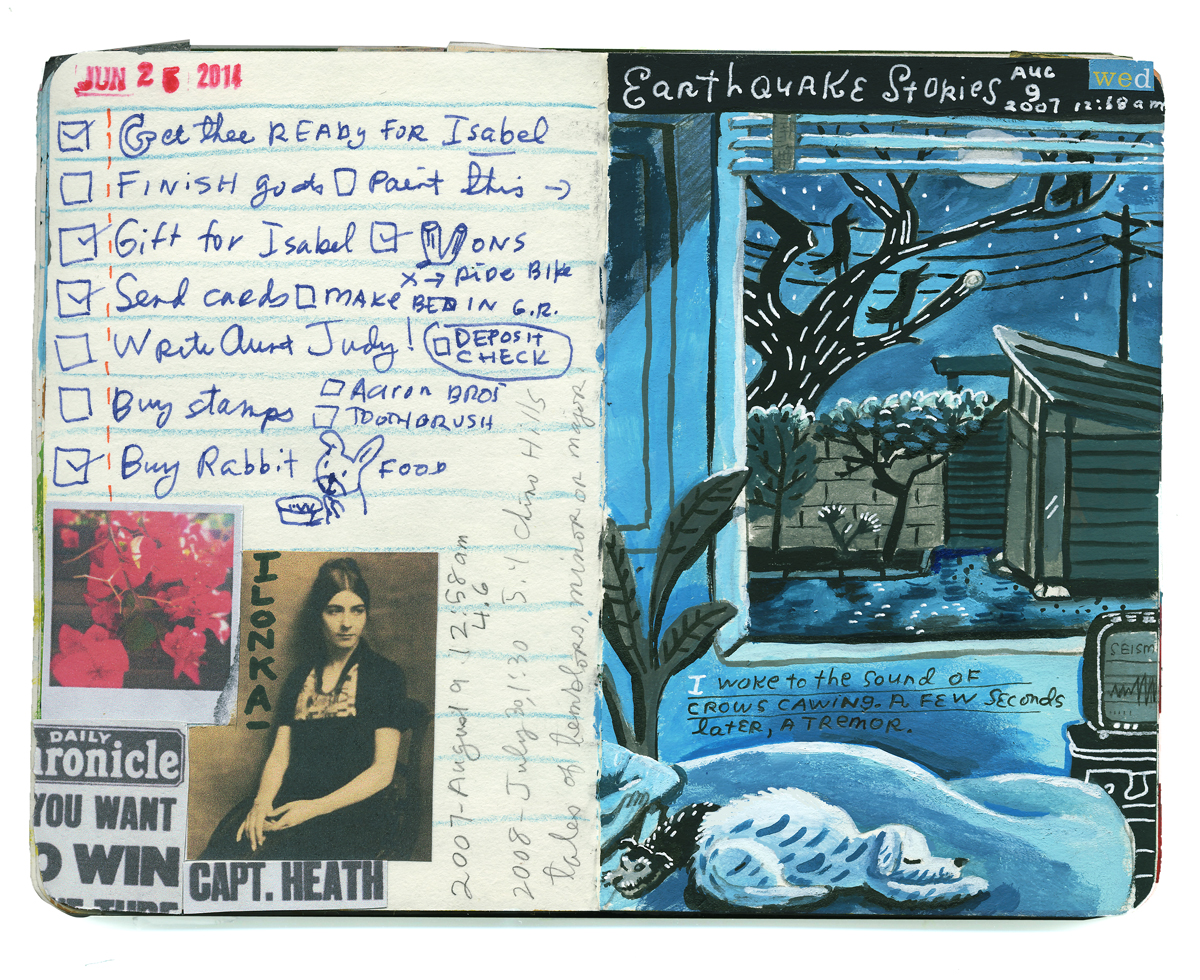 JUN 25 2014
Get thee READy FOR Isabel
FINISH gods Paint this →
Gift for Isabel ONS
X → RIDE BIKE
Send cards MAKE BED IN G.R.
Write Aunt Judy! DEPOSIT
CHECK
Buy stamps Aaron BROS
TOOTHBRUSH
Buy Rabbit FOOD
ILONKA!
DAILY
hronicle
YOU WANT
O WIN
CAPT. HEATH
2007-August 9. 12:58am
4.6
2008-July 29, 1:30 5.4 Chino Hills
tales of tremblors, minor or major
EarthQUAKE Stories AUG
9
2007 12:58am
wed
SEISM
I woke to the sound of
crows cawing. A few seconds
later, a tremor.